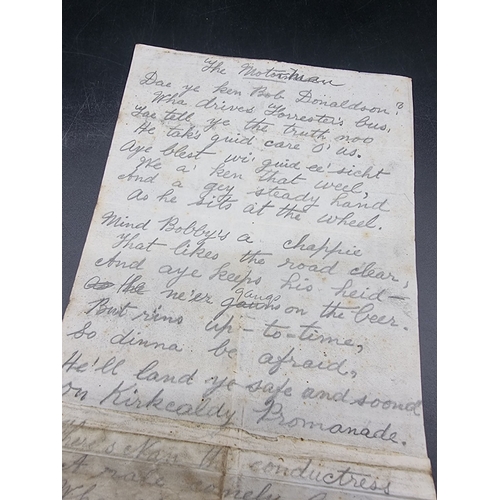 The Motorman
Dae ye ken Bob Donaldson?
Wha drives Forrester's bus,
Tae tell ye the truth noo
He tak's guid care o' us.
Aye blest wi' guid ee' sicht
We a' ken that weel,
And a gey steady hand
As he sits at the wheel.
Mind Bobby's a chappie
That likes the road clear,
And aye keeps his heid—
he ne'er gangs on the beer.
But rins up-to-time,
So dinna be afraid,
He'll land ye safe and soond
on Kirkcaldy Promanade.
conductress
A rale comely